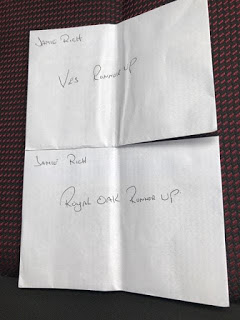 JAMIE RICH
VES RUNNER UP
JAMIE RICH
ROYAL OAK RUNNER UP